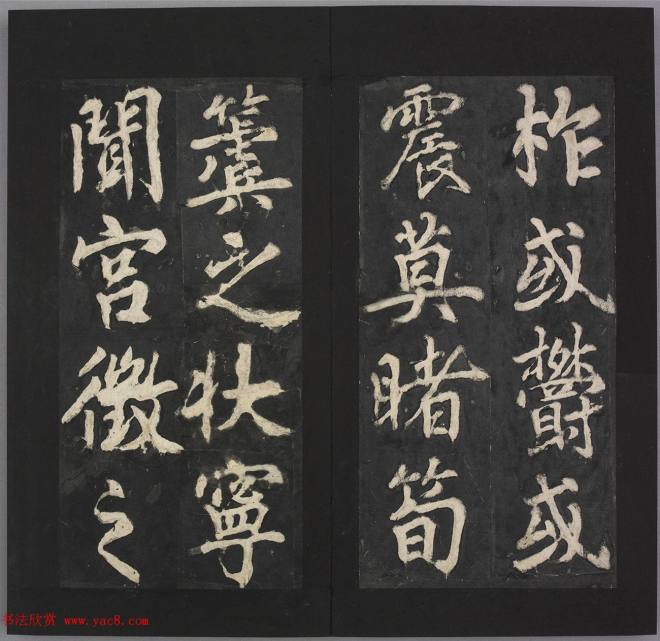 柞或欝或
震莫睹筍
簨之状寧
聞宮徵之
书法欣赏 www.yac8.com